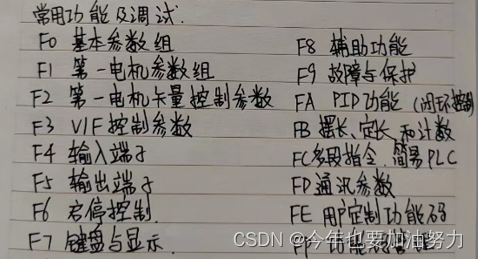 常用功能及调试.
F0 基本参数组
F1 第一电机参数组
F2 第一电机矢量控制参数
F3 V/F控制参数
F4 输入端子
F5 输出端子
F6 启停控制.
F7 键盘与显示.
F8 辅助功能
F9 故障与保护
FA PID功能 (闭环控制
FB 摆长、定长和计数
FC 多段指令、简易PLC
FD 通讯参数
FE 用户定制功能码
FP
CSDN @今年也要加油努力